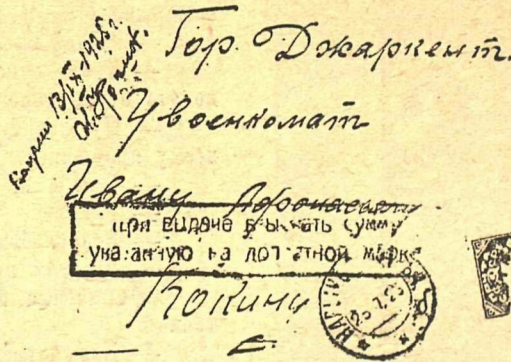 13/IX-1925г.
Гор. Джаркент.
Увоенкомат
Ивану Афонасьев
при выдаче взыскать сумму
указанную на доплатной марке
Кокину